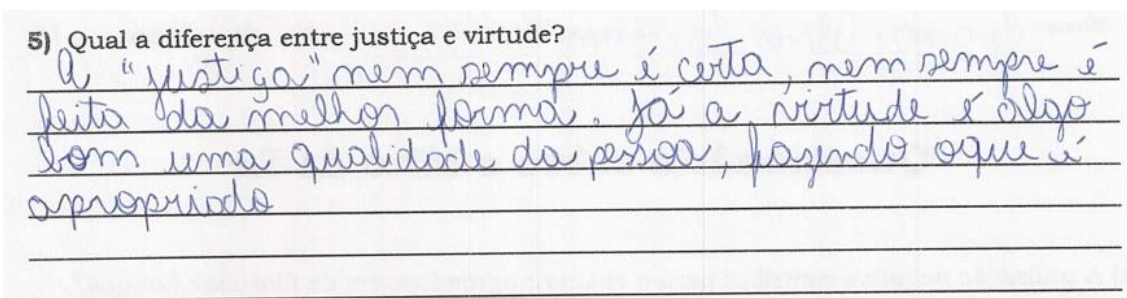 5) Qual a diferença entre justiça e virtude?
A "justiça" nem sempre é certa, nem sempre é
feita da melhor forma. Já a virtude é algo
bom uma qualidade da pessoa, fazendo oque é
apropriado